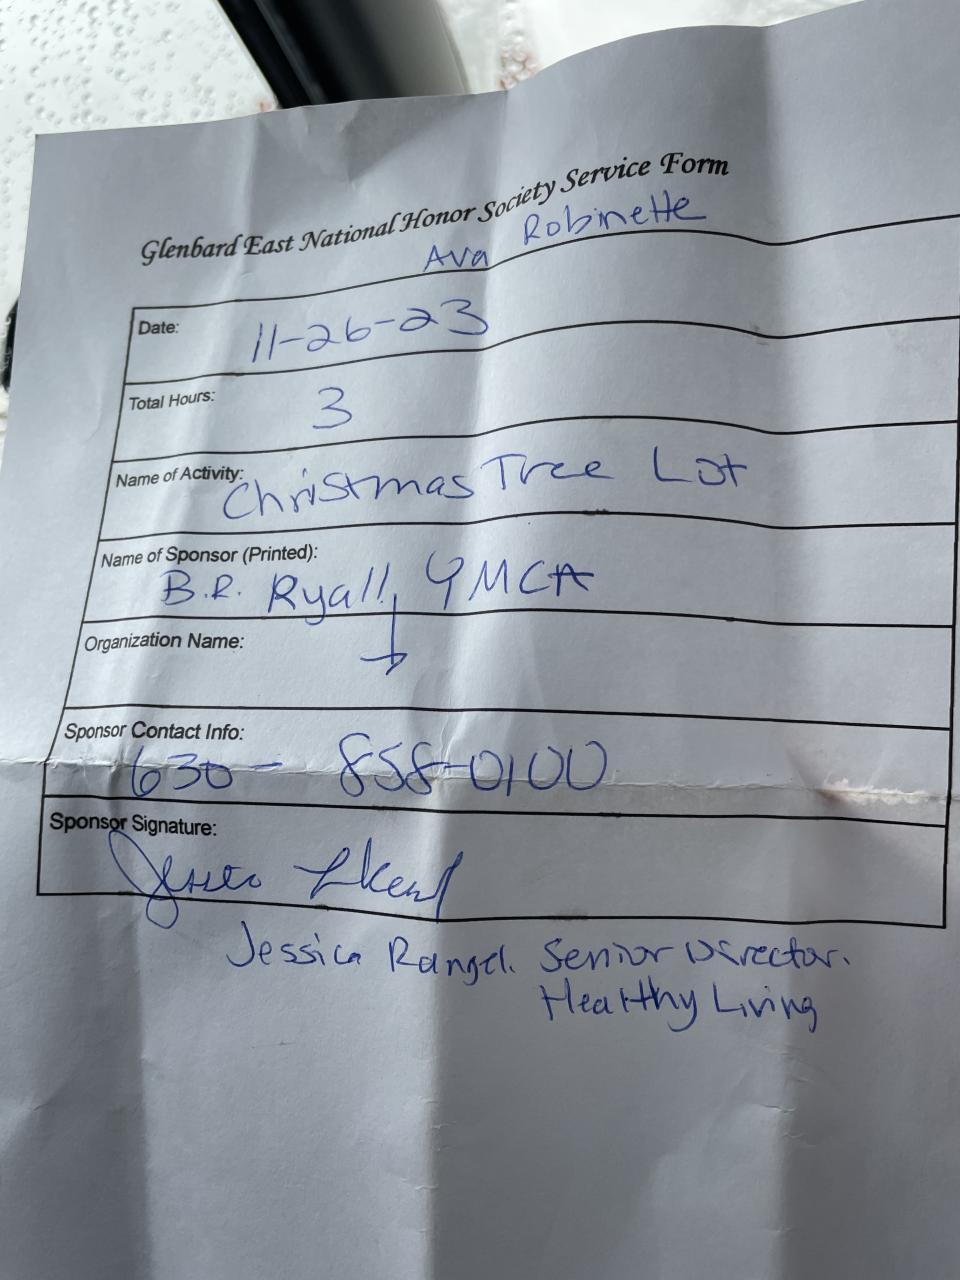 Glenbard East National Honor Society Service Form
Ava Robinette
Date: 11-26-23
Total Hours: 3
Name of Activity: Christmas Tree Lot
Name of Sponsor (Printed):
B.R. Ryall YMCA
Organization Name:
Sponsor Contact Info:
630- 858-0100
Sponsor Signature:
Jessica Rangel. Senior Director.
Healthy Living